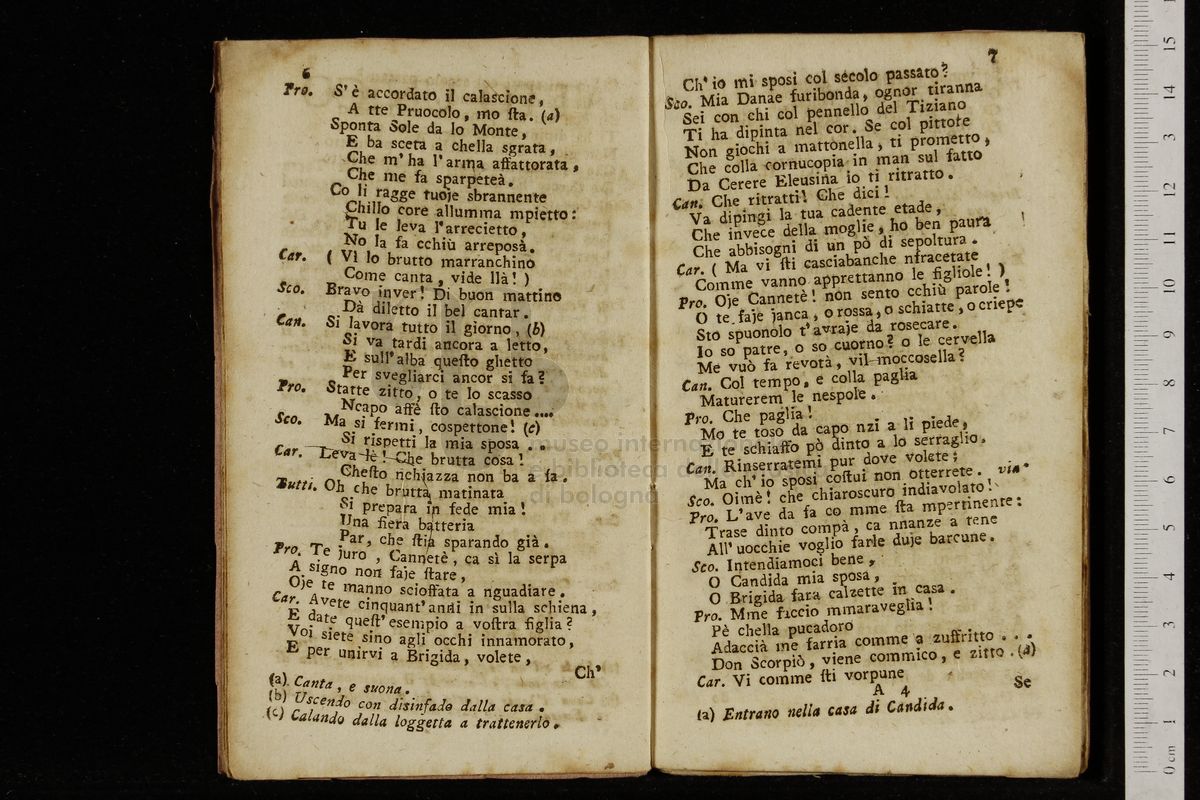 6
Pro. S'è accordato il calascione,
A tte Pruocolo, mo sta. (a)
Sponta Sole da lo Monte,
E ba sceta a chella sgrata,
Che m'ha l'arma affattorata,
Che me fa sparpeteà.
Co li ragge tuoje sbrannente
Chillo core allumma mpietto:
Tu le leva l'arrecietto,
No la fa cchiù arreposà.
Car. ( Vì lo brutto marranchino
Come canta, vide llà! )
Sco. Bravo inver! Di buon mattino
Dà diletto il bel cantar.
Can. Si lavora tutto il giorno, (b)
Si va tardi ancora a letto,
E sull'alba questo ghetto
Per svegliarci ancor si fa?
Pro. Statte zitto, o te lo scasso
Ncapo affè sto calascione....
Sco. Ma si fermi, cospettone! (c)
Si rispetti la mia sposa ..
Car. Leva lè! Che brutta cosa!
Chesto nchiazza non ba a fa.
Tutti. Oh che brutta matinara
Si prepara in fede mia!
Una fiera batteria
Par, che stia sparando già.
Pro. Te juro, Cannetè, ca sì la serpa
A signo non faje stare,
Oje te manno scioffata a nguadiare.
Car. Avete cinquant'anni in sulla schiena,
E date quest'esempio a vostra figlia?
Voi siete sino agli occhi innamorato,
E per unirvi a Brigida, volete,
Ch'
(a) Canta, e suona.
(b) Uscendo con disinfado dalla casa.
(c) Calando dalla loggetta a trattenerlo.
7
Ch'io mi sposi col secolo passato?
Sco. Mia Danae furibonda, ognor tiranna
Sei con chi col pennello del Tiziano
Ti ha dipinta nel cor. Se col pittote
Non giochi a mattonella, ti prometto,
Che colla cornucopia in man sul fatto
Da Cerere Eleusina io ti ritratto.
Can. Che ritratti! Che dici!
Va dipingi la tua cadente etade,
Che invece della moglie, ho ben paura
Che abbisogni di un pò di sepoltura.
Car. ( Ma vi sti casciabanche nfracetate
Comme vanno apprettanno le figliole! )
Pro. Oje Cannetè! non sento cchiù parole!
O te faje janca, o rossa, o schiatte, o criepe
Sto spuonolo t'avraje da rosecare.
Io so patre, o so cuorno? o le cervella
Me vuò fa revotà, vil moccosella?
Can. Col tempo, e colla paglia
Maturerem le nespole.
Pro. Che paglia!
Mo te toso da capo nzi a li piede,
E te schiaffo pò dinto a lo serraglio.
Can. Rinserratemi pur dove volete;
Ma ch'io sposi costui non otterrete. via.
Sco. Oimè! che chiaroscuro indiavolato!
Pro. L'ave da fa co mme sta mpertinente:
Trase dinto compà, ca nnanze a tene
All'uocchie voglio farle duje barcune.
Sco. Intendiamoci bene,
O Candida mia sposa,
O Brigida fara calzette in casa.
Pro. Mme ficcio mmaraveglia!
Pè chella pucadoro
Adaccià me farria comme a zuffritto ...
Don Scorpiò, viene commico, e zitto. (a)
Car. Vi comme sti vorpune
A 4
Se
(a) Entrano nella casa di Candida.
museo internazionale
e biblioteca della
di bologna